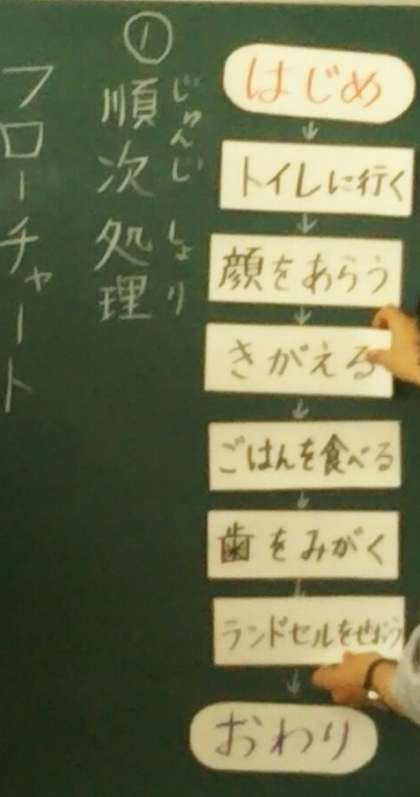 フローチャート
①
順次処理
じゅんじ しょり
はじめ
トイレに行く
顔をあらう
きがえる
ごはんを食べる
歯をみがく
ランドセルをせおう
おわり